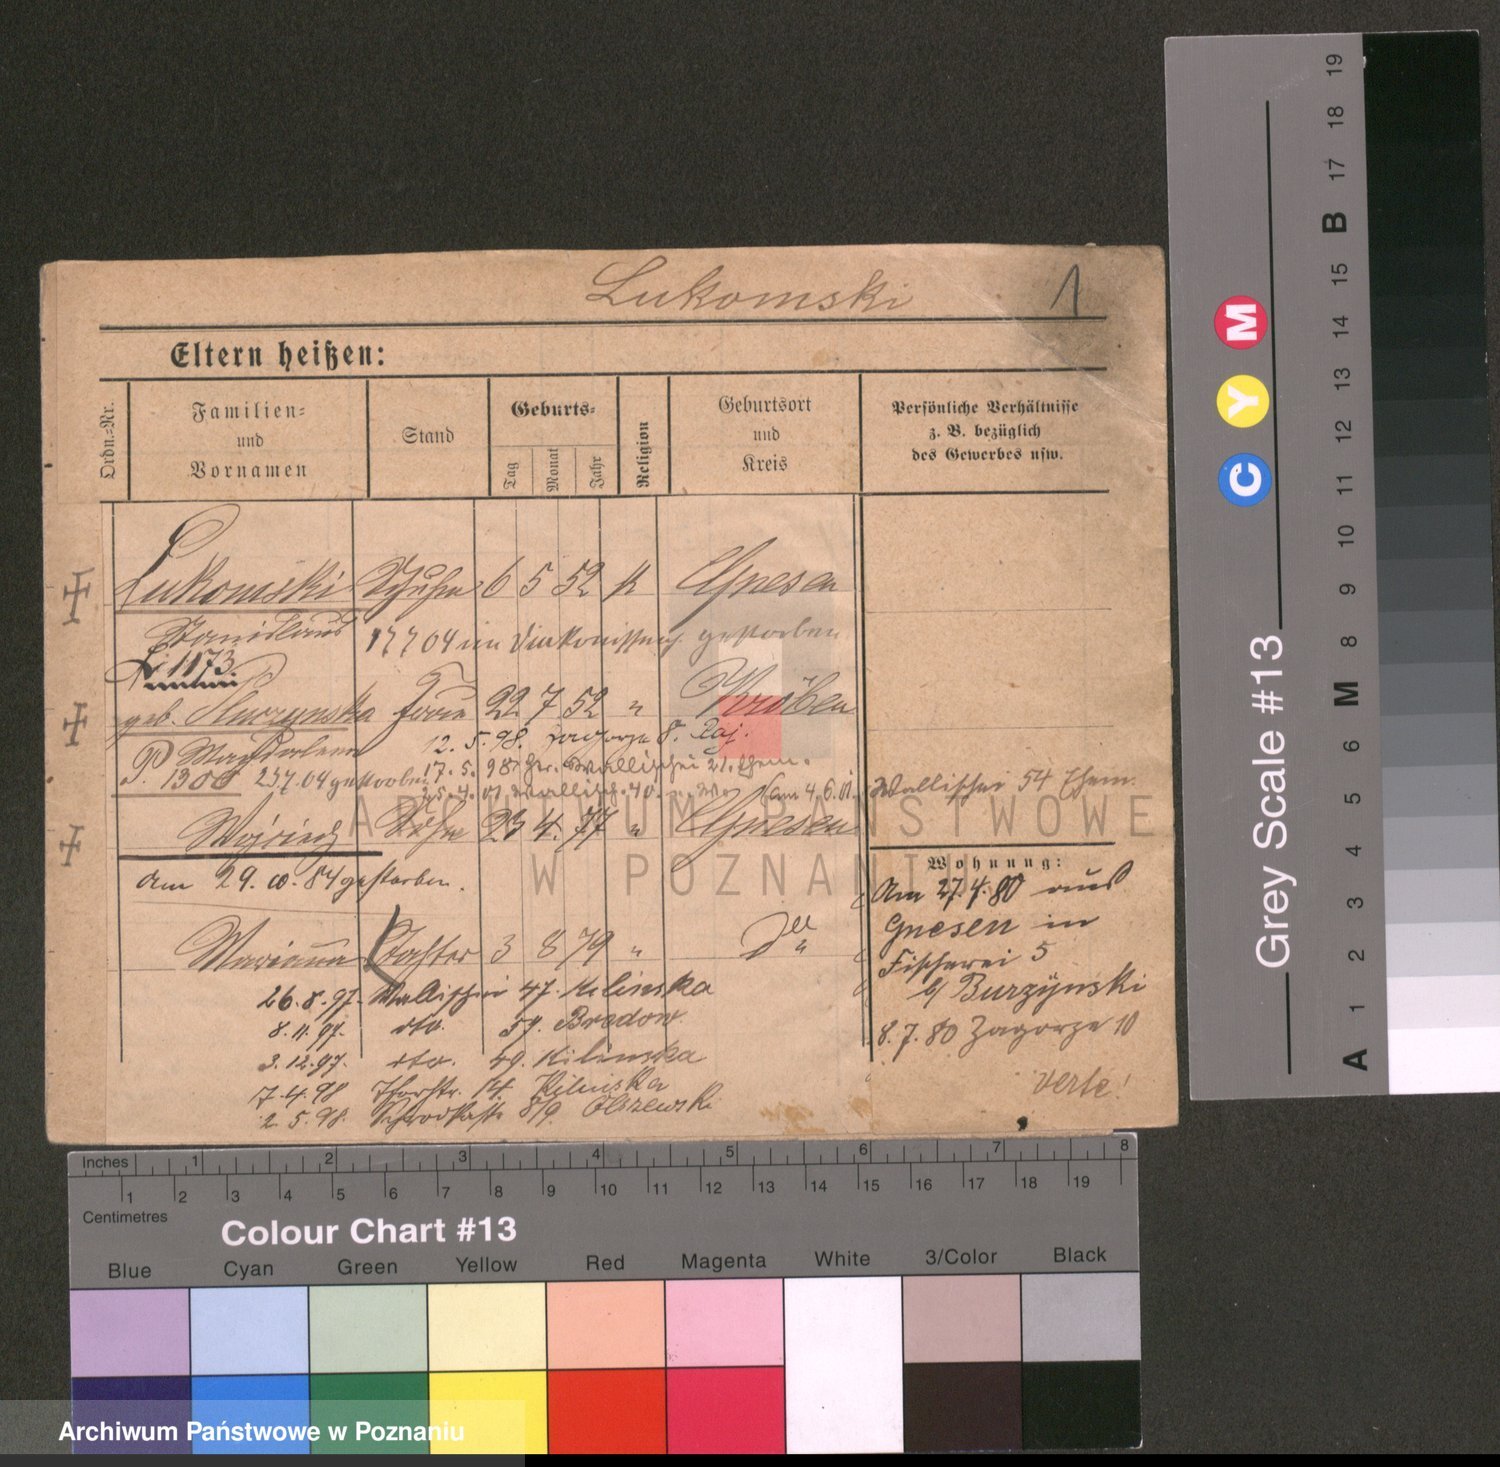 Lukomski 1
Eltern heißen:
Ordn.-Nr.
Familien-
und
Vornamen
Stand
Geburts-
Tag
Monat
Jahr
Religion
Geburtsort
und
Kreis
Persönliche Verhältnisse
z. B. bezüglich
des Gewerbes usw.
Lukomski 6 5 52 k Gnesen
Stanislaus 17 7 04 im gestorben
L. 1173
geb. Frau 22 7 52 " Kröben
Magdalena 12. 5. 98. Zagorze 8.
P. 1300 257.04 gestorben 17. 5. 98
Wallischei 54
23 4. 77 " Gnesen
am 29. 10. 84 gestorben.
Wohnung:
Am 27.4.80 aus
Gnesen in
Fischerei 5
b/ Burzynski
8. 7. 80 Zagorze 10
verte!
Marianna Tochter 3 8 79 "
26. 8. 97. Wallischei 47. Kilinska
8. 11. 97. dto. 59. Bredow.
3. 12. 97. dto. 49. Kilinska
7. 4. 98 14. Kilinska
2. 5. 98. 8/9. Olszewski
ARCHIWUM PAŃSTWOWE
W POZNANIU
Grey Scale #13
C Y M
A 1 2 3 4 5 6 M 8 9 10 11 12 13 14 15 B 17 18 19
Inches 1 2 3 4 5 6 7 8
Centimetres 1 2 3 4 5 6 7 8 9 10 11 12 13 14 15 16 17 18 19
Colour Chart #13
Blue Cyan Green Yellow Red Magenta White 3/Color Black
Archiwum Państwowe w Poznaniu